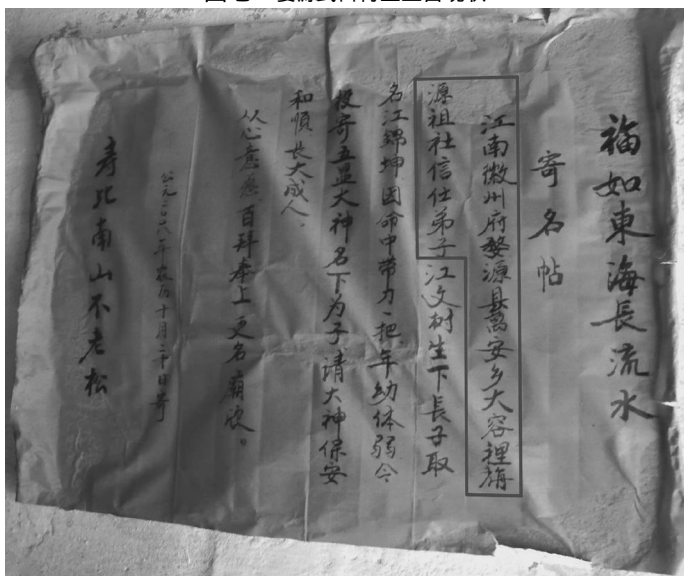 福如東海長流水
寄名帖
江南徽州府婺源縣萬安乡大容裡
源祖社信仕弟子江文树生下長子取
名江錦坤因命中带刀一把年幼体弱今
投寄五显大神名下为子请大神保安
和順長大成人、
从心意愿百拜奉上更名庙欣。
公元二〇〇八年农历十月二十日寄
寿比南山不老松